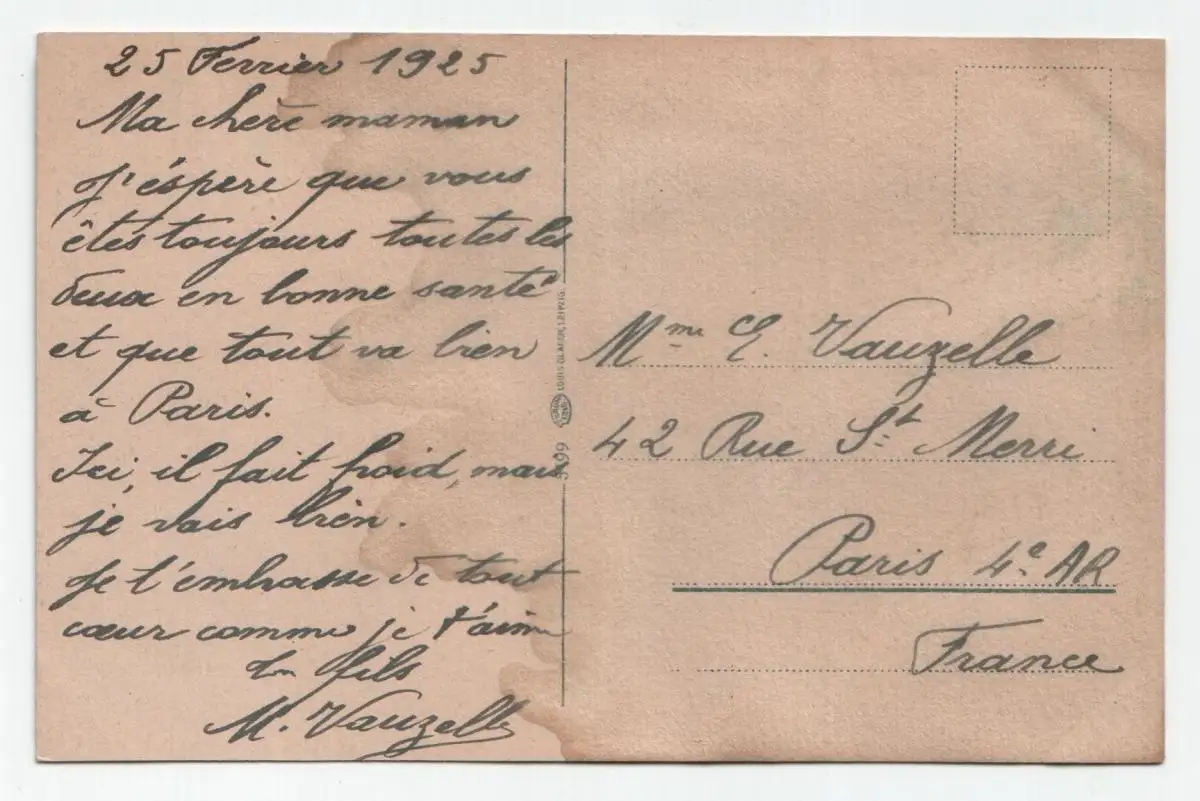 25 Fevrier 1925
Ma chère maman
J'éspère que vous
êtes toujours toutes les
deux en bonne santé
et que tout va bien
à Paris.
Ici, il fait froid, mais
je vais bien.
Je t'embrasse de tout
cœur comme je t'aime
ton fils
M. Vauzelle
LOUIS GLASER, LEIPZIG.
5499
Mme E. Vauzelle
42 Rue St Merri
Paris 4e AR
France